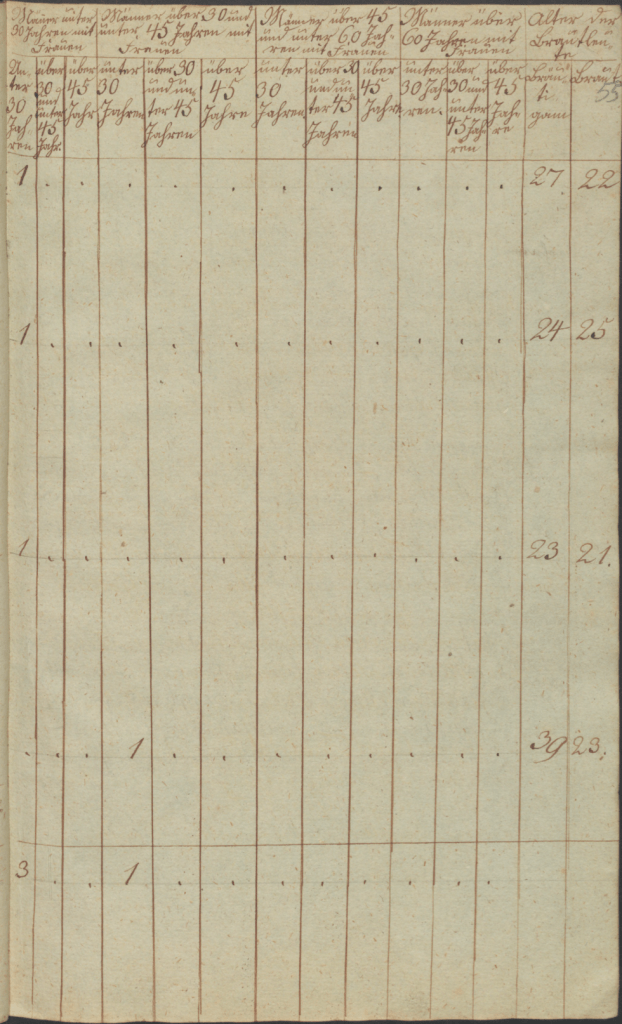 Männer unter 30 Jahren mit Frauen
Männer über 30 und unter 45 Jahren mit Frauen
Männer über 45 und unter 60 Jahren mit Frauen
Männer über 60 Jahren mit Frauen
Alter der Brautleute
Unter 30 Jahren
über 30 und unter 45 Jahr.
über 45 Jahr
unter 30 Jahren
über 30 und unter 45 Jahren
über 45 Jahre
unter 30 Jahren
über 30 und unter 45 Jahren
über 45 Jahre
unter 30 Jahren.
über 30 und unter 45 Jahren
über 45 Jahre
Bräutigam
Braut
55
1 . . . . . . . . . . . 27. 22
1 . . . . . . . . . . . 24 25
1 . . . . . . . . . . . 23 21.
. . . 1 . . . . . . . . 39 23.
3 . . 1 . . . . . . . .